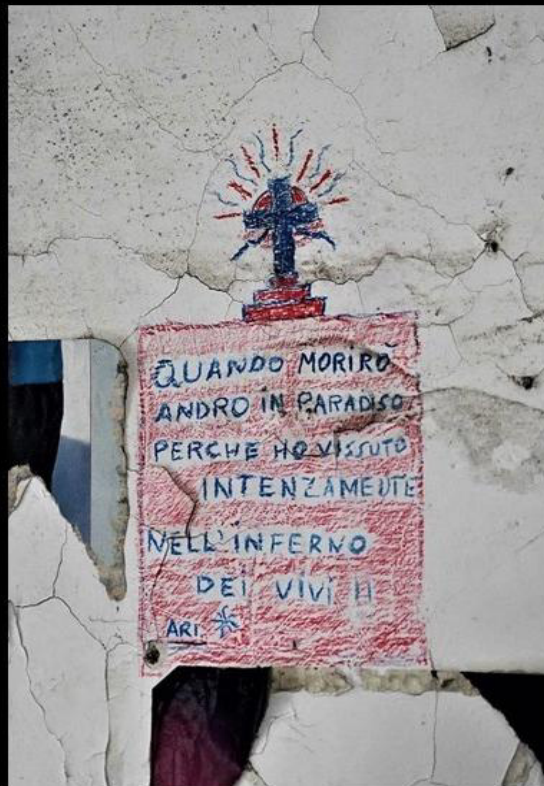 QUANDO MORIRÒ
ANDRO IN PARADISO
PERCHE HO VISSUTO
INTENZAMEUTE
NELL'INFERNO
DEI VIVI !!
ARI